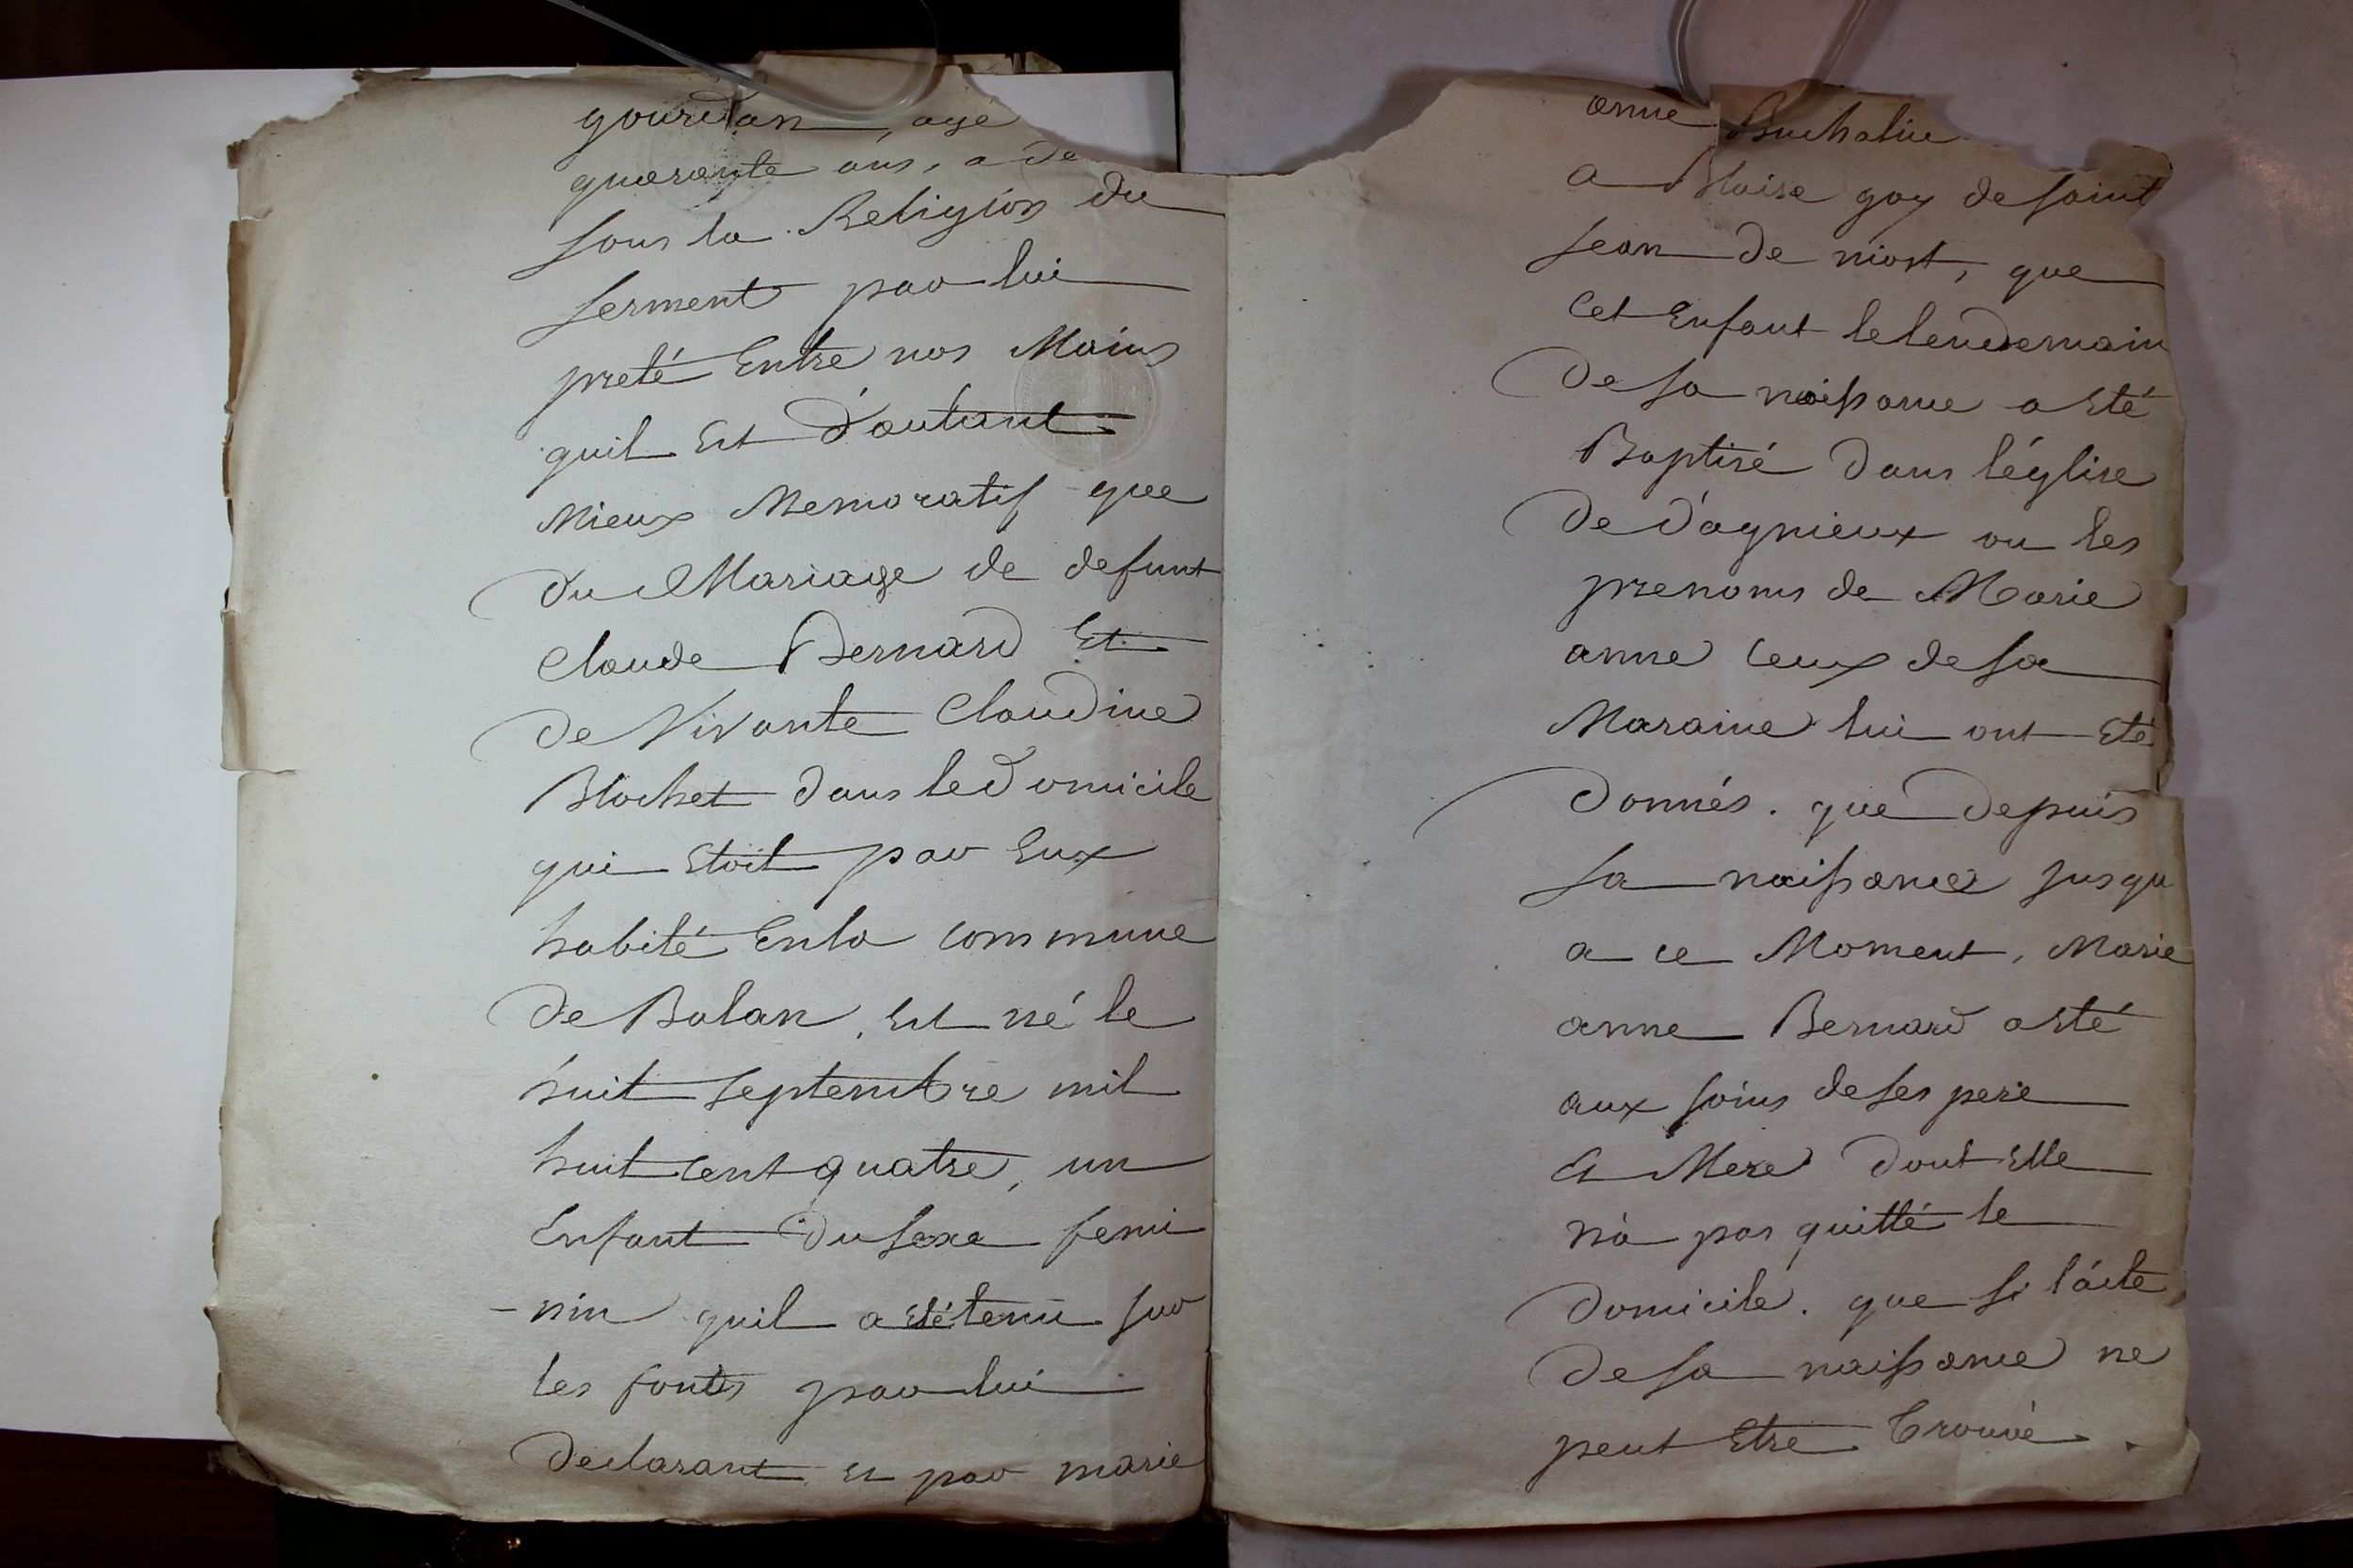 gourdan, agé
quarante ans, a de
sous la Religion du
serment par lui
preté Entre nos Mains
quil Est d'autant
Mieux Memoratif que
du Mariage de defunt
Claude Bernard Et
de Vivante Claudine
Blochet dans le domicile
qui Etoit par Eux
habité En la commune
de Balan, Est né le
huit septembre mil
huit cent quatre, un
Enfant du sexe femi
-nin quil a été tenu sur
les fonts par lui
declarant et par marie
anne
a Blaise goy de saint
jean de niost, que
cet Enfant le lendemain
de sa naissance a Eté
Baptisé dans l'église
de d'agnieux ou les
prenoms de Marie
anne ceux de sa
Maraine lui ont Eté
donnés. que depuis
sa naissance jusqu
a ce Moment, Marie
anne Bernard a Eté
aux soins de ses pere
Et Mere dont Elle
n'a pas quitté le
domicile. que si l'acte
de sa naissance ne
peut Etre trouvé.